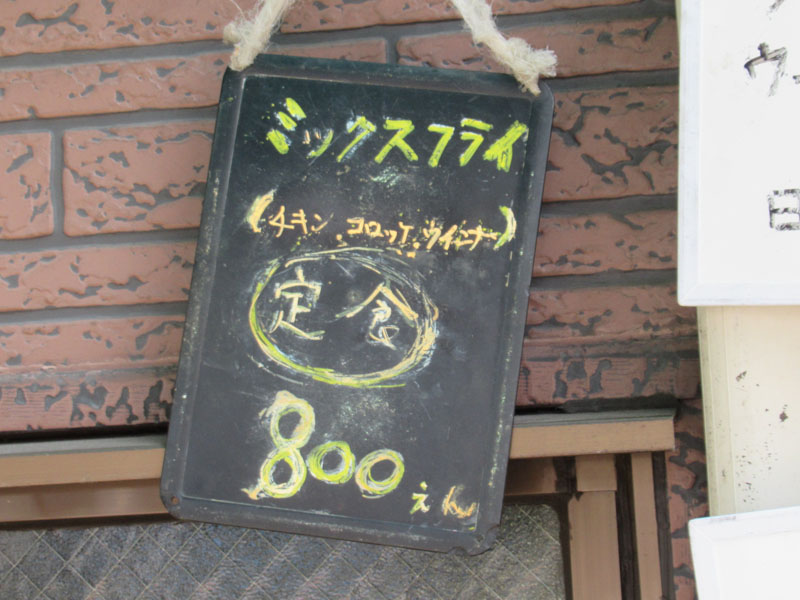 ミックスフライ
(チキン.コロッケ.ウインナー)
定食
800えん
ウ
日